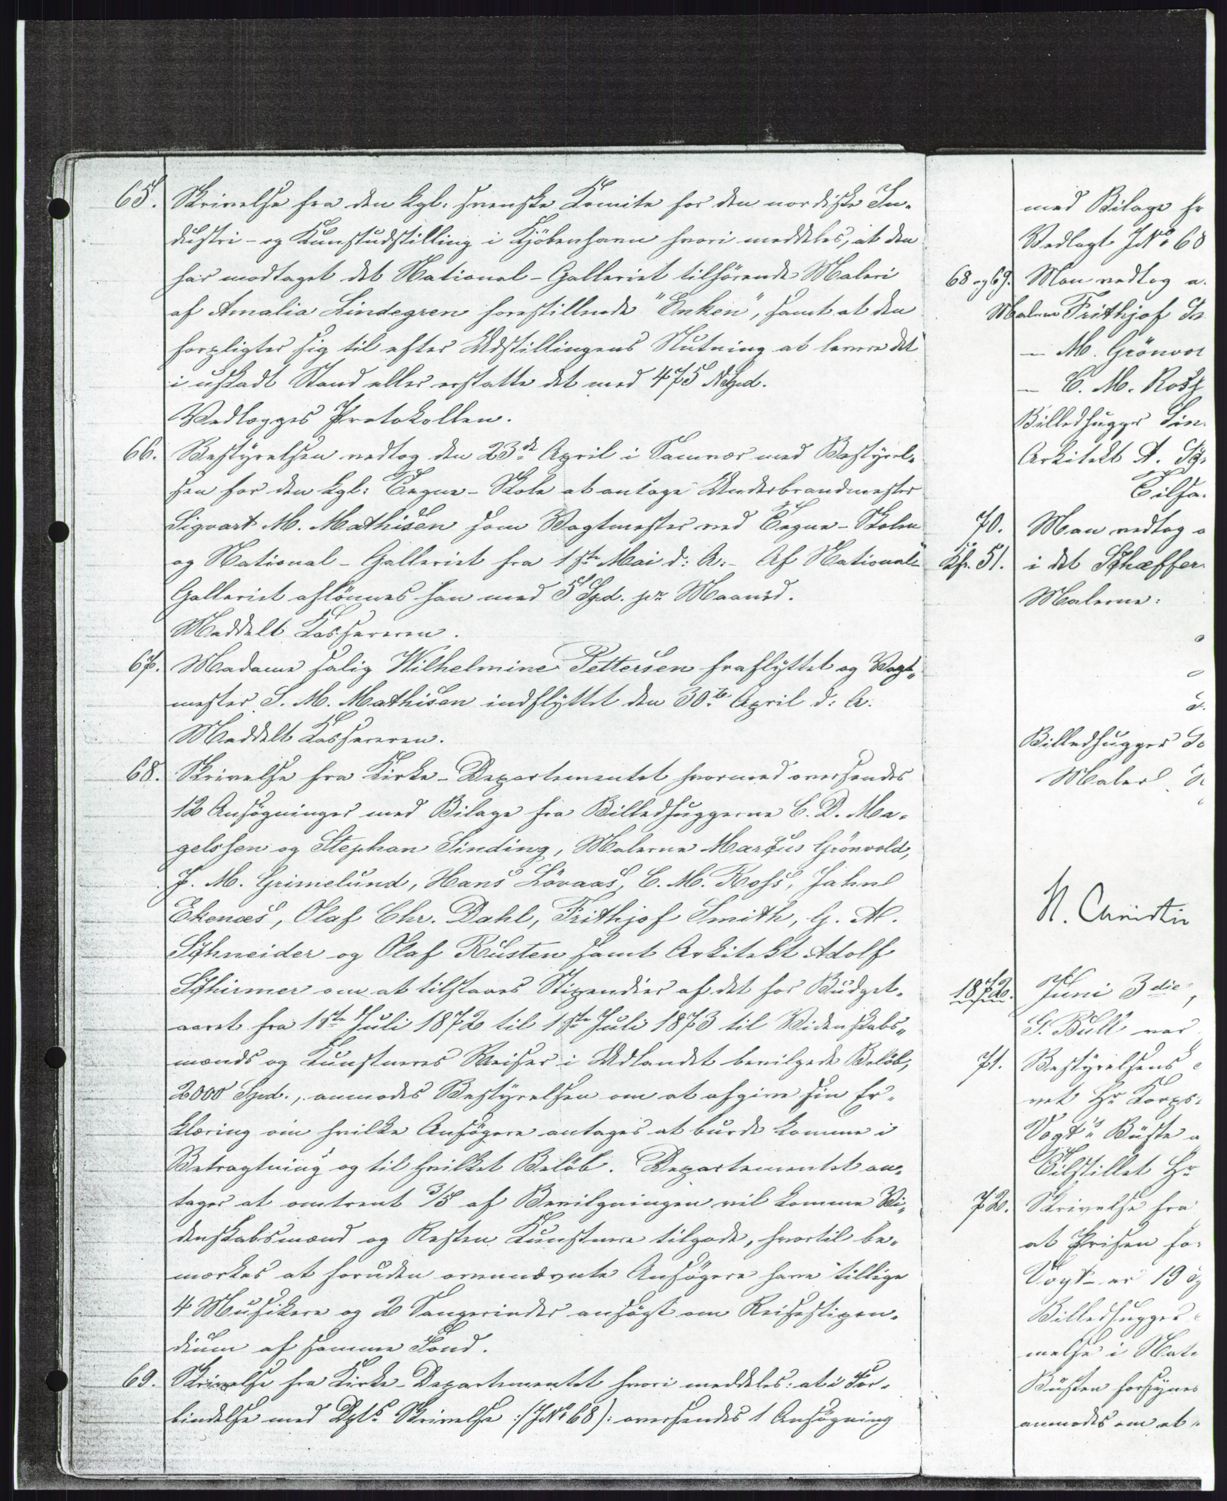 65. Skrivelse fra den kgl: svenske Komite for den nordiske In-
dustri- og Kunstudstilling i Kjöbenhavn hvori meddeles, at den
har modtaget det National-Galleriet tilhörende Maleri
af Amalia Lindegren forestillende "Enken", samt at den
forpligter sig til efter Udstillingens Slutning at levere det
i uskadt Stand eller erstatte det med 475 Spd.
Vedlægges Protokollen.
66. Bestyrelsen vedtog den 23de April i Samraad med Bestyrel-
sen for den kgl: Tegne-Skole at antage Underbrandmester
Sigvart M. Mathisen som Vagtmester ved Tegne-Skolen
og National-Galleriet fra 1ste Mai d: A:- Af National-
Galleriet aflönnes han med 5 Spd. pr Maaned.
Meddelt Kassereren.
67. Madame salig Wilhelmine Pettersen fraflyttet og Vagt-
mester S. M. Mathisen indflyttet den 30te April d: A.
Meddelt Kassereren.
68. Skrivelse fra Kirke-Departementet hvormed oversendes
12 Ansögninger med Bilage fra Billedhuggerne C. D. Ma-
gelssen og Stephan Sinding, Malerne Marcus Grönvold,
J. M. Grimelund, Hans Lövaas, C. M. Ross, Jahnl
Ekenæs, Olaf Chr. Dahl, Frithjof Smith, G. A.
Schneider og Olaf Rusten samt Arkitekt Adolf
Schirmer om at tilstaaes Stipendier af det for Budget-
aaret fra 1ste Juli 1872 til 1ste Juli 1873 til Videnskabs-
mænds og Kunstneres Reiser i Udlandet bevilgede Belöb,
2000 Spd., anmodes Bestyrelsen om at afgive sin Er-
klæring om hvilke Ansögere antages at burde komme i
Betragtning og til hvilket Belöb. Departementet an-
tager at omtrent 3/5 af Bevilgningen vil komme Vi-
denskabsmænd og Resten Kunstnere tilgode, hvortil be-
mærkes at foruden ovennævnte Ansögere have tillige
4 Musikere og 2 Sangerinder ansögt om Reisestipen-
dium af samme Fond.
69. Skrivelse fra Kirke-Departementet hvori meddeles: at i For-
bindelse med Dpts Skrivelse :/J No 68/: oversendes 1 Ansögning
med Bilage fr
Vedlagt J No 68
68 og 69. Man vedtog a
Malerne Frithjof
— M. Grönvol
— C. M. Ross
Billedhugger Sin
Arkitekt A.
Tilsa
70. Man vedtog
Kfr. 51. i det Schæffer
Malerne:
Billedhugger
Maler
H. Christi
1872. Juni 3die,
G. Bull var
71. Bestyrelsens
vet Hr Korps-
Vogts Büste
Tilstillet Hr
72. Skrivelse fra
at Prisen fo
Vogt er 19
Billedhugger
melse i Nat
Büsten forsynes
anmodes om at